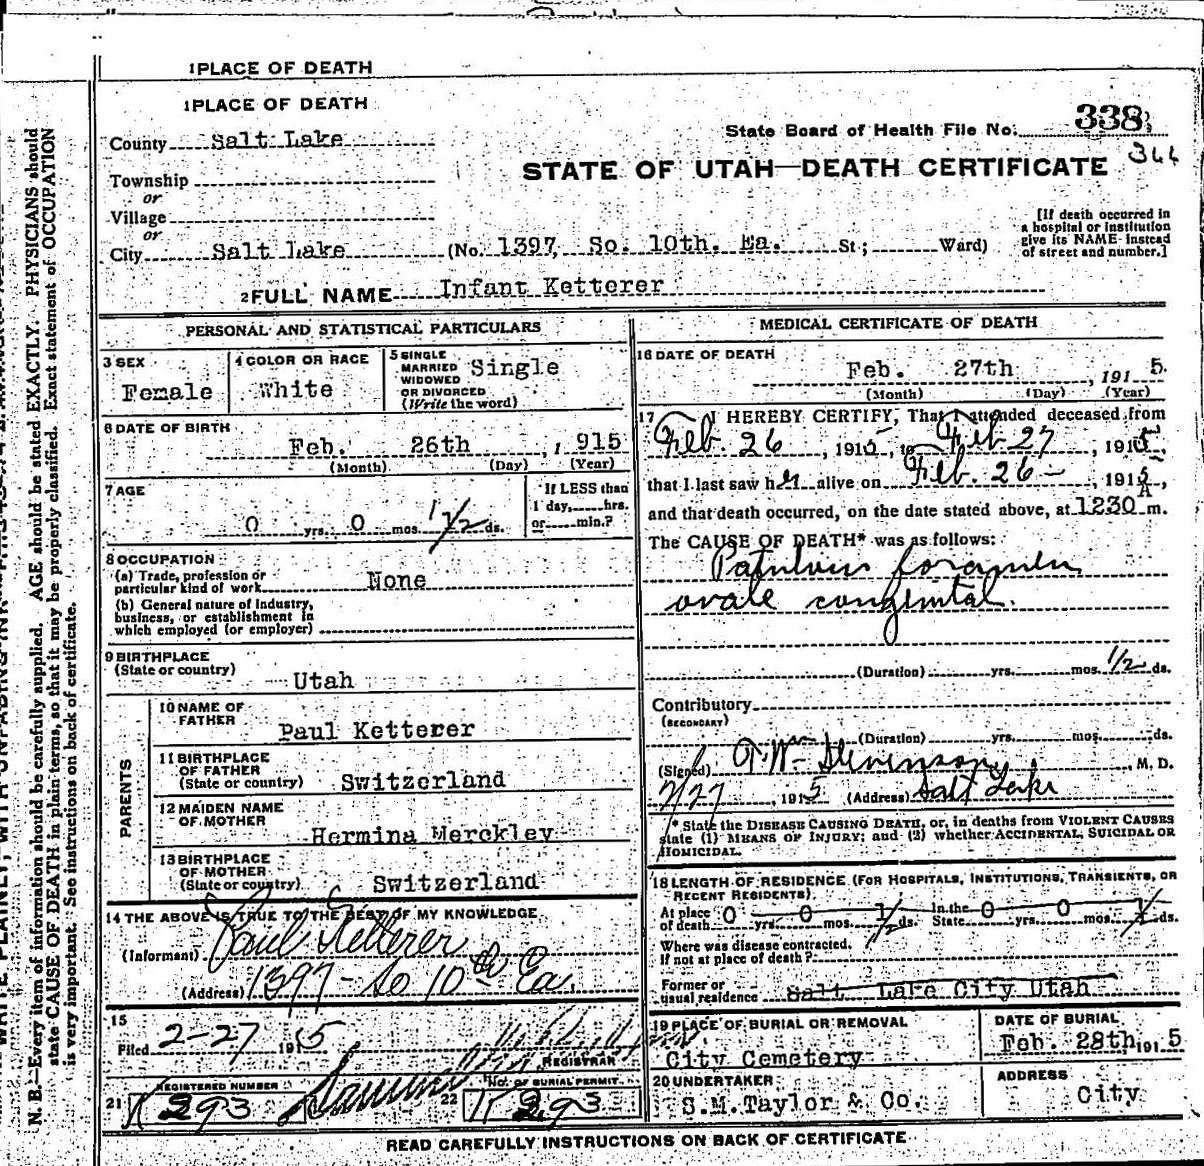 1 PLACE OF DEATH
1 PLACE OF DEATH
County Salt Lake
State Board of Health File No. 338
344
STATE OF UTAH—DEATH CERTIFICATE
Township
or
Village
or
City Salt Lake (No. 1397, So. 10th. Ea. St; Ward)
[If death occurred in a hospital or institution give its NAME instead of street and number.]
2 FULL NAME Infant Ketterer
PERSONAL AND STATISTICAL PARTICULARS
3 SEX
Female
4 COLOR OR RACE
White
5 SINGLE
MARRIED
WIDOWED
OR DIVORCED
(Write the word)
Single
6 DATE OF BIRTH
Feb. 26th , 1 915
(Month) (Day) (Year)
7 AGE
0 yrs. 0 mos. 1 1/2 ds.
If LESS than
1 day, hrs.
or min.?
8 OCCUPATION
(a) Trade, profession or
particular kind of work None
(b) General nature of industry,
business, or establishment in
which employed (or employer)
9 BIRTHPLACE
(State or country)
Utah
PARENTS
10 NAME OF
FATHER
Paul Ketterer
11 BIRTHPLACE
OF FATHER
(State or country) Switzerland
12 MAIDEN NAME
OF MOTHER
Hermina Merckley
13 BIRTHPLACE
OF MOTHER
(State or country) Switzerland
14 THE ABOVE IS TRUE TO THE BEST OF MY KNOWLEDGE
(Informant) Paul Ketterer
(Address) 1397 - So 10th Ea.
15
Filed 2-27 1915
REGISTRAR
REGISTERED NUMBER
21 293
No. OF BURIAL PERMIT
22 293
MEDICAL CERTIFICATE OF DEATH
16 DATE OF DEATH
Feb. 27th , 191 5.
(Month) (Day) (Year)
17 I HEREBY CERTIFY, That I attended deceased from
Feb. 26 , 1915, to Feb 27 , 1915,
that I last saw her alive on Feb. 26 - , 1915,
and that death occurred, on the date stated above, at 1230 A m.
The CAUSE OF DEATH* was as follows:
Patulous foramen
ovale congenital.
(Duration) yrs. mos. 1/2 ds.
Contributory
(SECONDARY)
(Duration) yrs. mos. ds.
(Signed) Wm Stevenson, M. D.
2/27 , 1915 (Address) Salt Lake
* State the DISEASE CAUSING DEATH, or, in deaths from VIOLENT CAUSES
state (1) MEANS OF INJURY; and (2) whether ACCIDENTAL, SUICIDAL OR
HOMICIDAL.
18 LENGTH OF RESIDENCE (FOR HOSPITALS, INSTITUTIONS, TRANSIENTS, OR
RECENT RESIDENTS).
At place
of death 0 yrs. 0 mos. 1/2 ds. In the
State 0 yrs. 0 mos. 1/2 ds.
Where was disease contracted,
if not at place of death?
Former or
usual residence Salt Lake City Utah
19 PLACE OF BURIAL OR REMOVAL
City Cemetery
DATE OF BURIAL
Feb. 28th, 191 5
20 UNDERTAKER
S.M. Taylor & Co.
ADDRESS
City
READ CAREFULLY INSTRUCTIONS ON BACK OF CERTIFICATE
N. B.—Every item of information should be carefully supplied. AGE should be stated EXACTLY. PHYSICIANS should
state CAUSE OF DEATH in plain terms, so that it may be properly classified. Exact statement of OCCUPATION
is very important. See instructions on back of certificate.